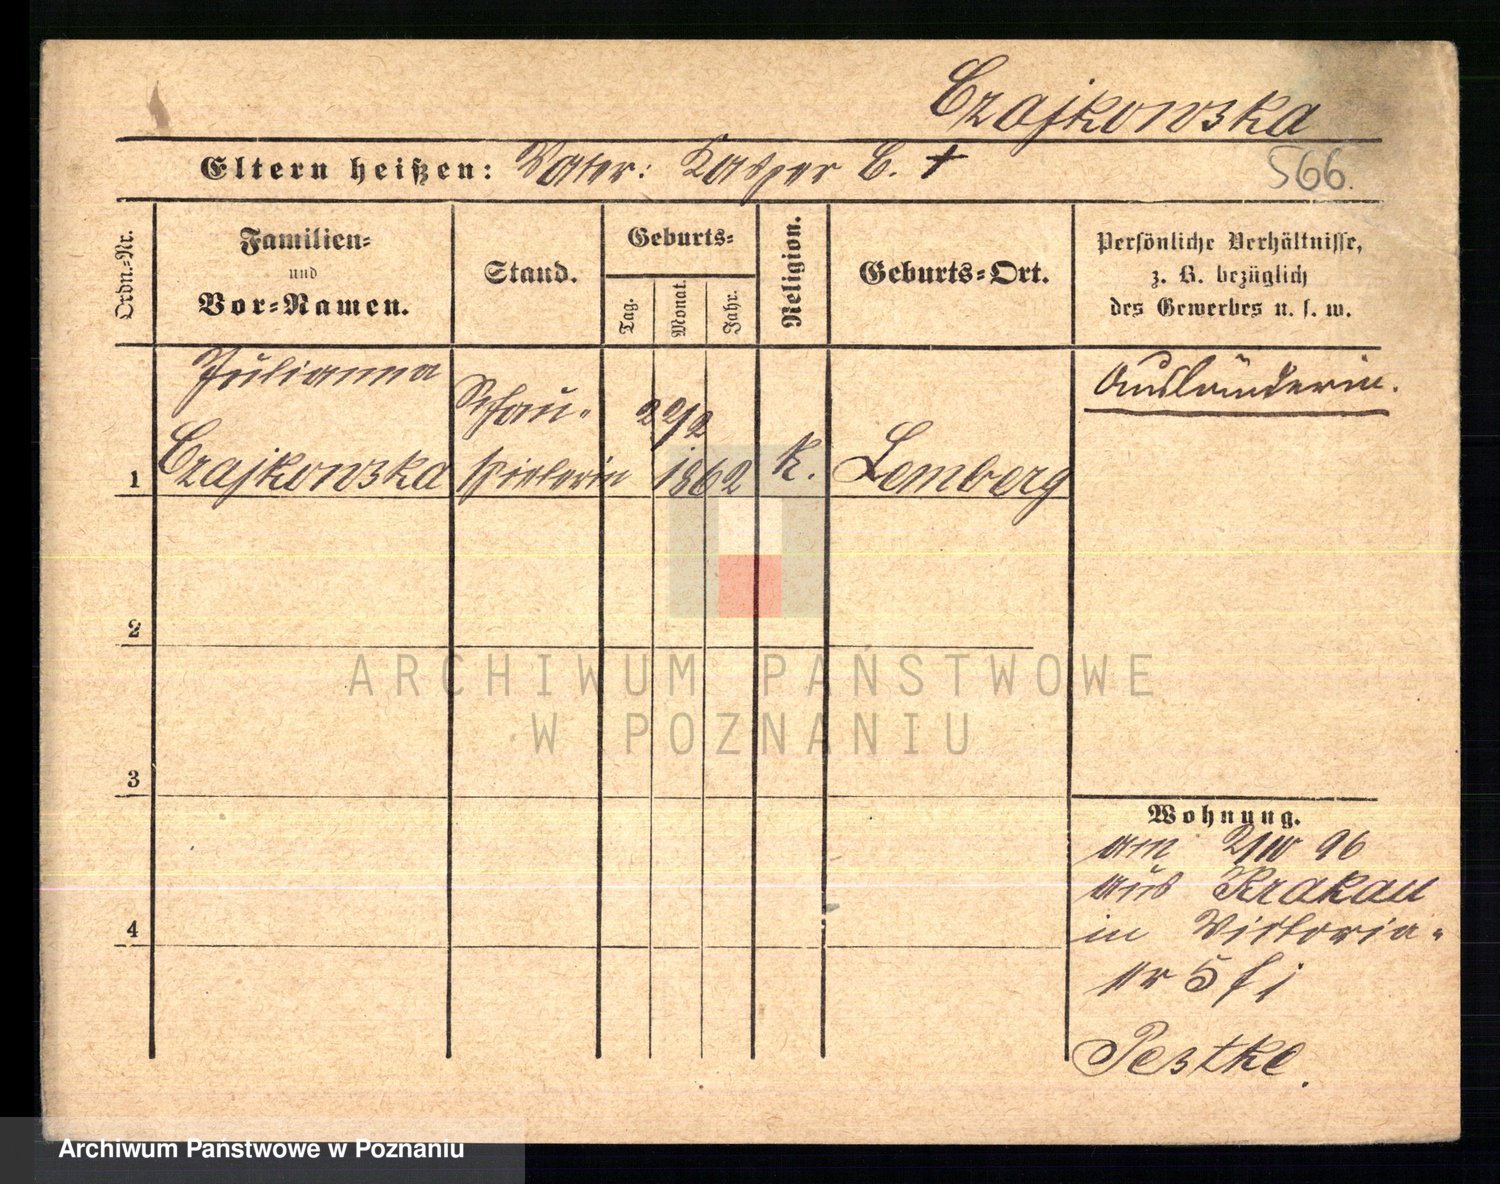 Czajkowska
Eltern heißen: Vater: Kasper C. †
566.
Ordn.-Nr.
Familien-
und
Vor-Namen.
Stand.
Geburts-
Tag.
Monat.
Jahr.
Religion.
Geburts-Ort.
Persönliche Verhältnisse,
z. B. bezüglich
des Gewerbes u. s. w.
Julianna
Czajkowska
Schau-
spielerin
22/2
1862
k.
Lemberg
Ausländerin.
1
2
3
4
Wohnung.
am 2/10 96
aus Krakau
in Viktoria-
str 5 bei
Pestke.
ARCHIWUM PAŃSTWOWE
W POZNANIU
Archiwum Państwowe w Poznaniu